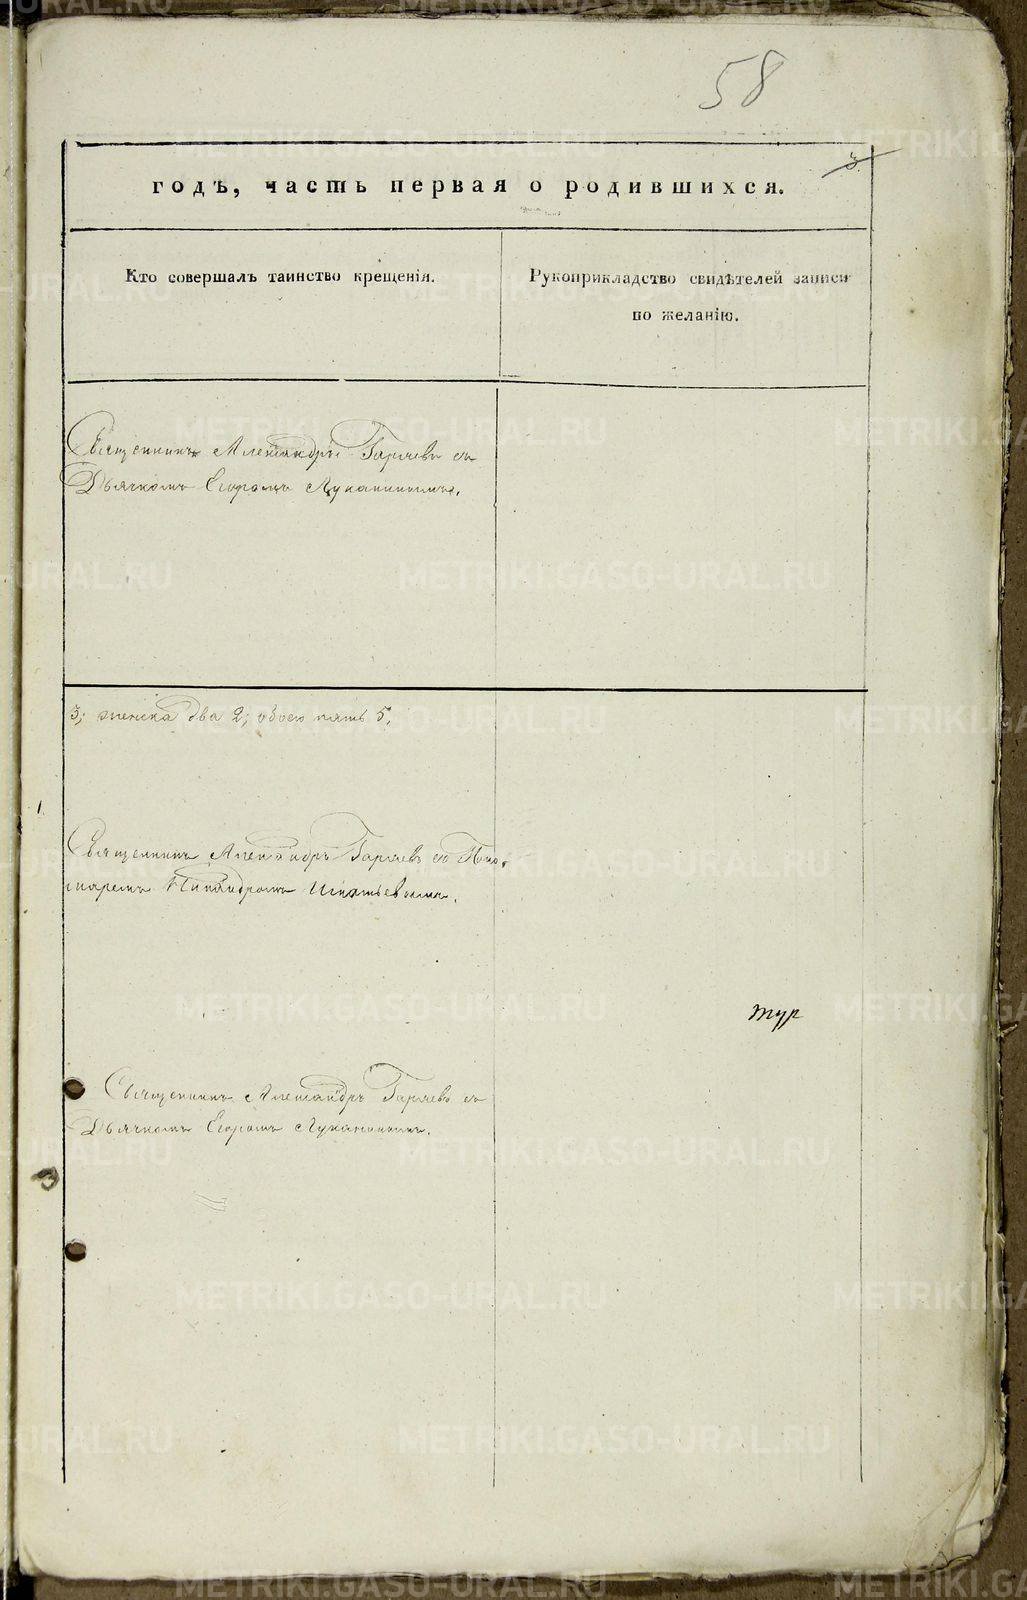 58
3.
годъ, часть первая о родившихся.
Кто совершалъ таинство крещенія.
Рукоприкладство свидѣтелей записи
по желанію.
Священникъ Александръ Гаряевъ съ
Дьячкомъ Егоромъ Луканинымъ.
3; женска два 2; обоего пять 5.
1.
Священникъ Александръ Гаряевъ съ Поно-
маремъ Никандромъ Игнатьевымъ.
Священникъ Александръ Гаряевъ съ
Дьячкомъ Егоромъ Луканинымъ.
METRIKI.GASO-URAL.RU